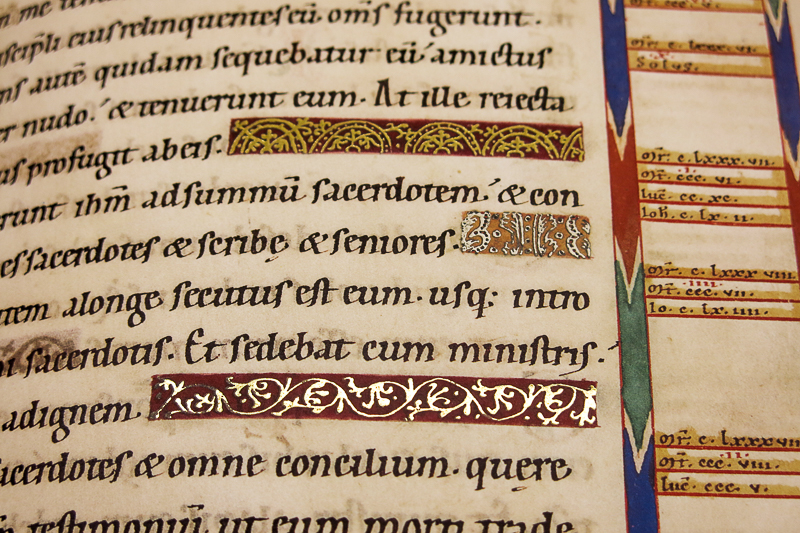 discipli eius relinquentes eū. om̄s fugerunt.
autē quidam sequebatur eū amictus
nudo. & tenuerunt eum. At ille reiecta
profugit abeis.
ihm̄ adsummū sacerdotem. & con
sacerdotes & scribę & seniores.
alonge secutus est eum. usq: intro
sacerdotis. Et sedebat cum ministris.
adignem.
sacerdotes & omne concilium. quęre
testimoniū ut eum morti trade
Sołus.
mr̄. c. lxxx. vii.
mt̄. ccc. vi.
luc̄. cc. xc.
Ioh̄. c. lx. ii.
mr̄. c. lxxx viii.
mt̄. ccc. vii.
Io. c. lx. iiii.
mr̄. c. lxxx viii
mt̄. ccc. viii.
luc̄. ccc. v.